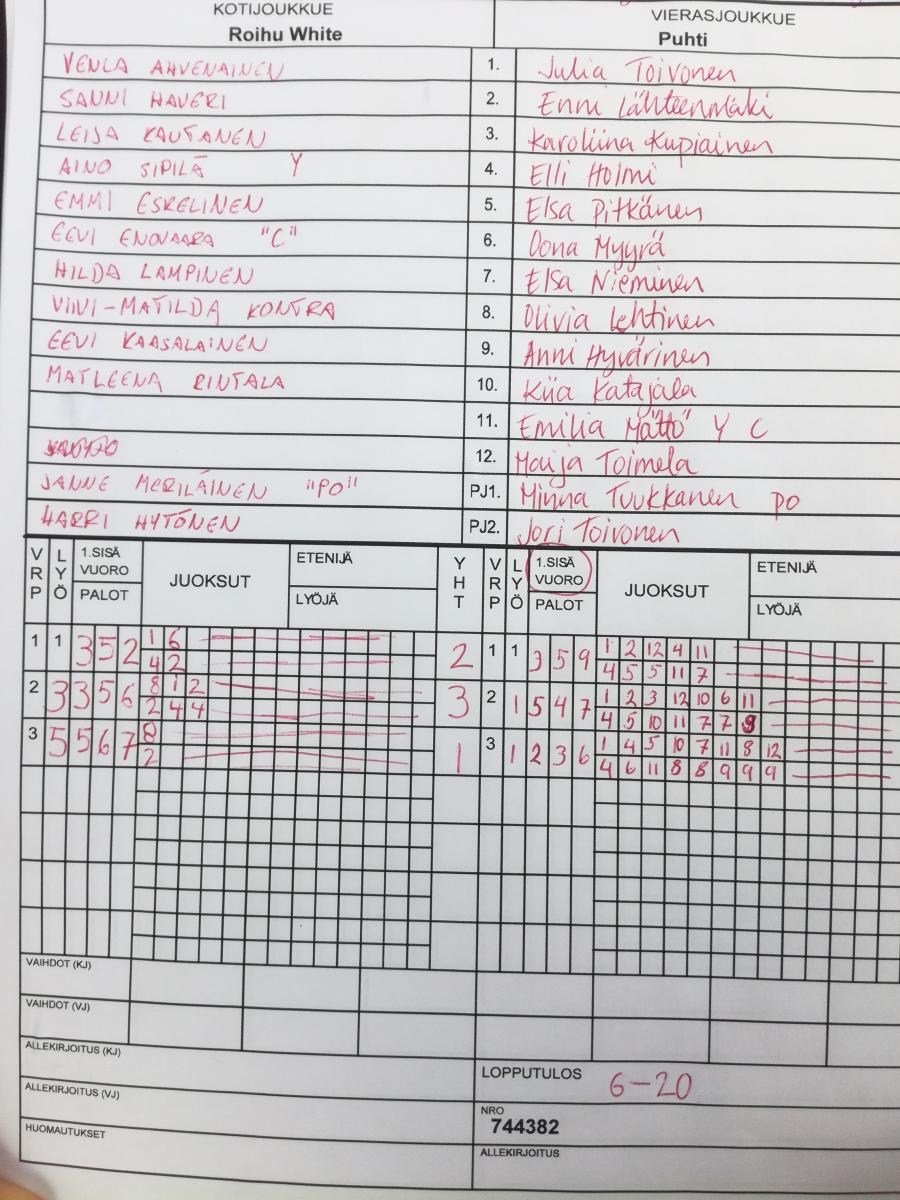 KOTIJOUKKUE VIERASJOUKKUE
Roihu White Puhti
VENLA AHVENAINEN 1. Julia Toivonen
SANNI HAVERI 2. Enni Lähteenmäki
LEIJA KAUTANEN 3. Karoliina Kupiainen
AINO SIPILÄ Y 4. Elli Holmi
EMMI ESKELINEN 5. Elsa Pitkänen
EEVI ENOVAARA "C" 6. Oona Myyrä
HILDA LAMPINEN 7. Elsa Nieminen
VIIVI-MATILDA KONTRA 8. Olivia Lehtinen
EEVI KAASALAINEN 9. Anni Hyvärinen
MATLEENA RINTALA 10. Kiia Katajala
11. Emilia Mättö Y C
12. Maija Toimela
JANNE MERILÄINEN "PO" PJ1. Minna Tuukkanen PO
HARRI HYTÖNEN PJ2. Jori Toivonen
VRP LYÖ 1.SISÄ VUORO PALOT JUOKSUT ETENIJÄ LYÖJÄ YHT VRP LYÖ 1.SISÄ VUORO PALOT JUOKSUT ETENIJÄ LYÖJÄ
1 1 3 5 2 1 6 2 1 1 3 5 9 1 2 12 4 11
4 2 4 5 5 11 7
2 3 3 5 6 8 1 2 3 2 1 5 4 7 1 2 3 12 10 6 11
2 4 4 4 5 10 11 7 7 9
3 5 5 6 7 8 1 3 1 2 3 6 1 4 5 10 7 11 8 12
2 4 6 11 8 8 9 9 9
VAIHDOT (KJ)
VAIHDOT (VJ)
ALLEKIRJOITUS (KJ)
LOPPUTULOS 6-20
ALLEKIRJOITUS (VJ)
NRO
744382
HUOMAUTUKSET
ALLEKIRJOITUS